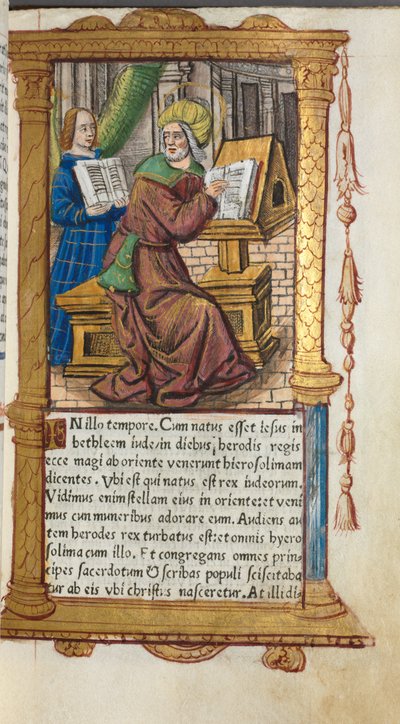 IN illo tempore. Cum natus esset iesus in
bethleem iude/in diebus herodis regis
ecce magi ab oriente venerunt hierosolimam
dicentes. Vbi est qui natus est rex iudeorum.
Vidimus enim stellam eius in oriente: et veni
mus cum muneribus adorare eum. Audiens au
tem herodes rex turbatus est: et omnis hyero
solima cum illo. Et congregans omnes prin-
cipes sacerdotum & scribas populi sciscitaba
tur ab eis vbi christus nasceretur. At illi di-